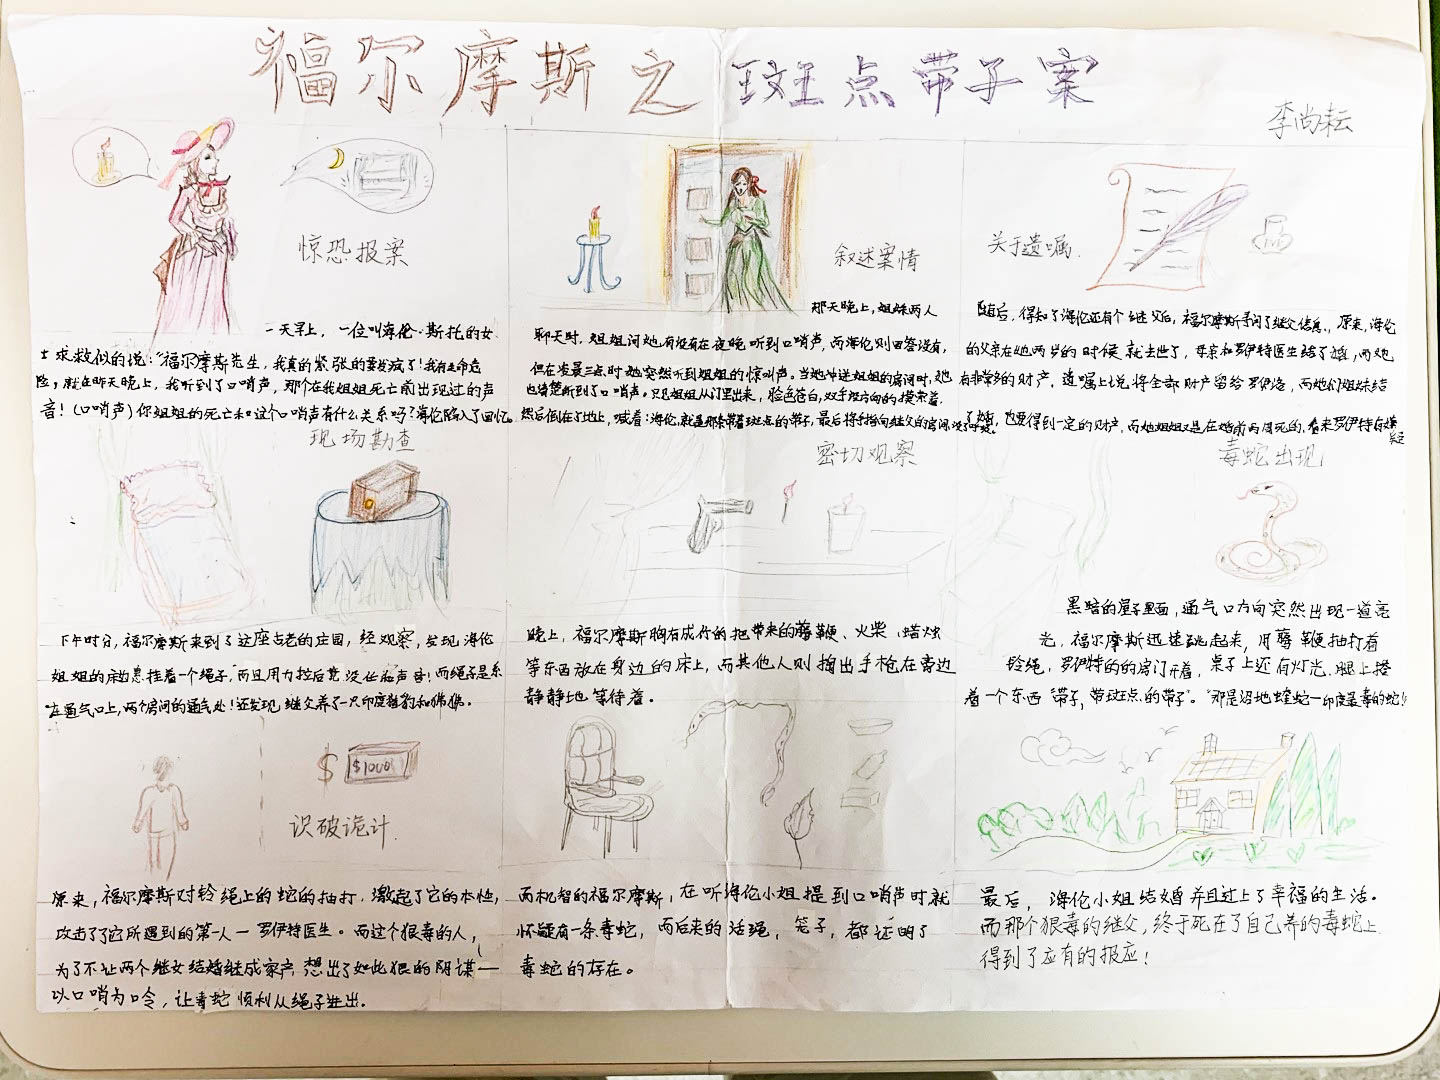 福尔摩斯之斑点带子案
李尚耘
惊恐报案
一天早上，一位叫海伦·斯托的女
士求救似的说："福尔摩斯先生，我真的紧张的要发疯了！我有生命危
险，就在昨天晚上，我听到了口哨声，那个在我姐姐死亡前出现过的声
音！（口哨声）你姐姐的死亡和这个口哨声有什么关系吗？海伦陷入了回忆。
叙述案情
那天晚上，姐妹两人
聊天时，姐姐问她有没有在夜晚听到口哨声，而海伦则回答没有，
但在凌晨三点时她突然听到姐姐的惊叫声。当她冲进姐姐的房间时，她
也清楚听到了口哨声。只见姐姐从门里出来，脸色苍白，双手没方向的摸索着，
然后倒在了地上，喊着：海伦，就是那条带着斑点的带子，最后将手指向继父的房间
关于遗嘱
随后，得知了海伦还有个继父后，福尔摩斯寻问了继父信息，原来，海伦
的父亲在她两岁的时候就去世了，母亲和罗伊特医生结了婚，而她
有非常多的财产，遗嘱上说将全部财产留给罗伊洛，而她们姐妹结
了婚，也要得到一定的财产，而她姐姐又是在婚前两周死的，看来罗伊特有嫌
疑
现场勘查
下午时分，福尔摩斯来到了这座古老的庄园，经观察，发现海伦
姐姐的床边悬挂着一个绳子，而且用力拉后竟没任何声音！而绳子是系
在通气口上，两个房间的通气处！还发现继父养了一只印度猎豹和狒狒。
密切观察
晚上，福尔摩斯胸有成竹的把带来的藤鞭、火柴、蜡烛
等东西放在身边的床上，而其他人则掏出手枪在旁边
静静地等待着。
毒蛇出现
黑暗的屋子里面，通气口方向突然出现一道亮
光，福尔摩斯迅速跳起来，用藤鞭抽打着
铃绳，罗伊特的的房门开着，桌子上还有灯光，腿上搭
着一个东西"带子，带斑点的带子"。"那是沼地蝰蛇—印度最毒的蛇！"
$ $1000
识破诡计
原来，福尔摩斯对铃绳上的蛇的抽打，激起了它的本性，
攻击了它所遇到的第一人—罗伊特医生。而这个狠毒的人，
为了不让两个继女结婚继成家产，想出了如此狠的阴谋—
以口哨为口令，让毒蛇顺利从绳子进出。
而机智的福尔摩斯，在听海伦小姐提到口哨声时就
怀疑有一条毒蛇，而后来的活绳，笼子，都证明了
毒蛇的存在。
最后，海伦小姐结婚并且过上了幸福的生活。
而那个狠毒的继父，终于死在了自己养的毒蛇上
得到了应有的报应！